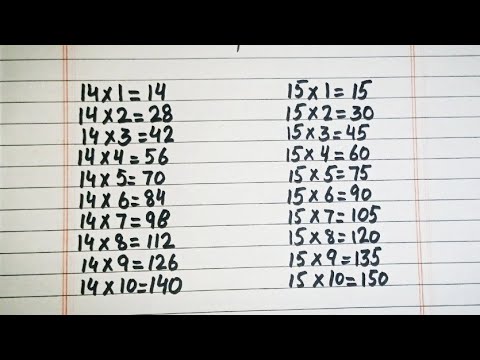 14×1=14
14×2=28
14×3=42
14×4=56
14×5=70
14×6=84
14×7=98
14×8=112
14×9=126
14×10=140
15×1=15
15×2=30
15×3=45
15×4=60
15×5=75
15×6=90
15×7=105
15×8=120
15×9=135
15×10=150